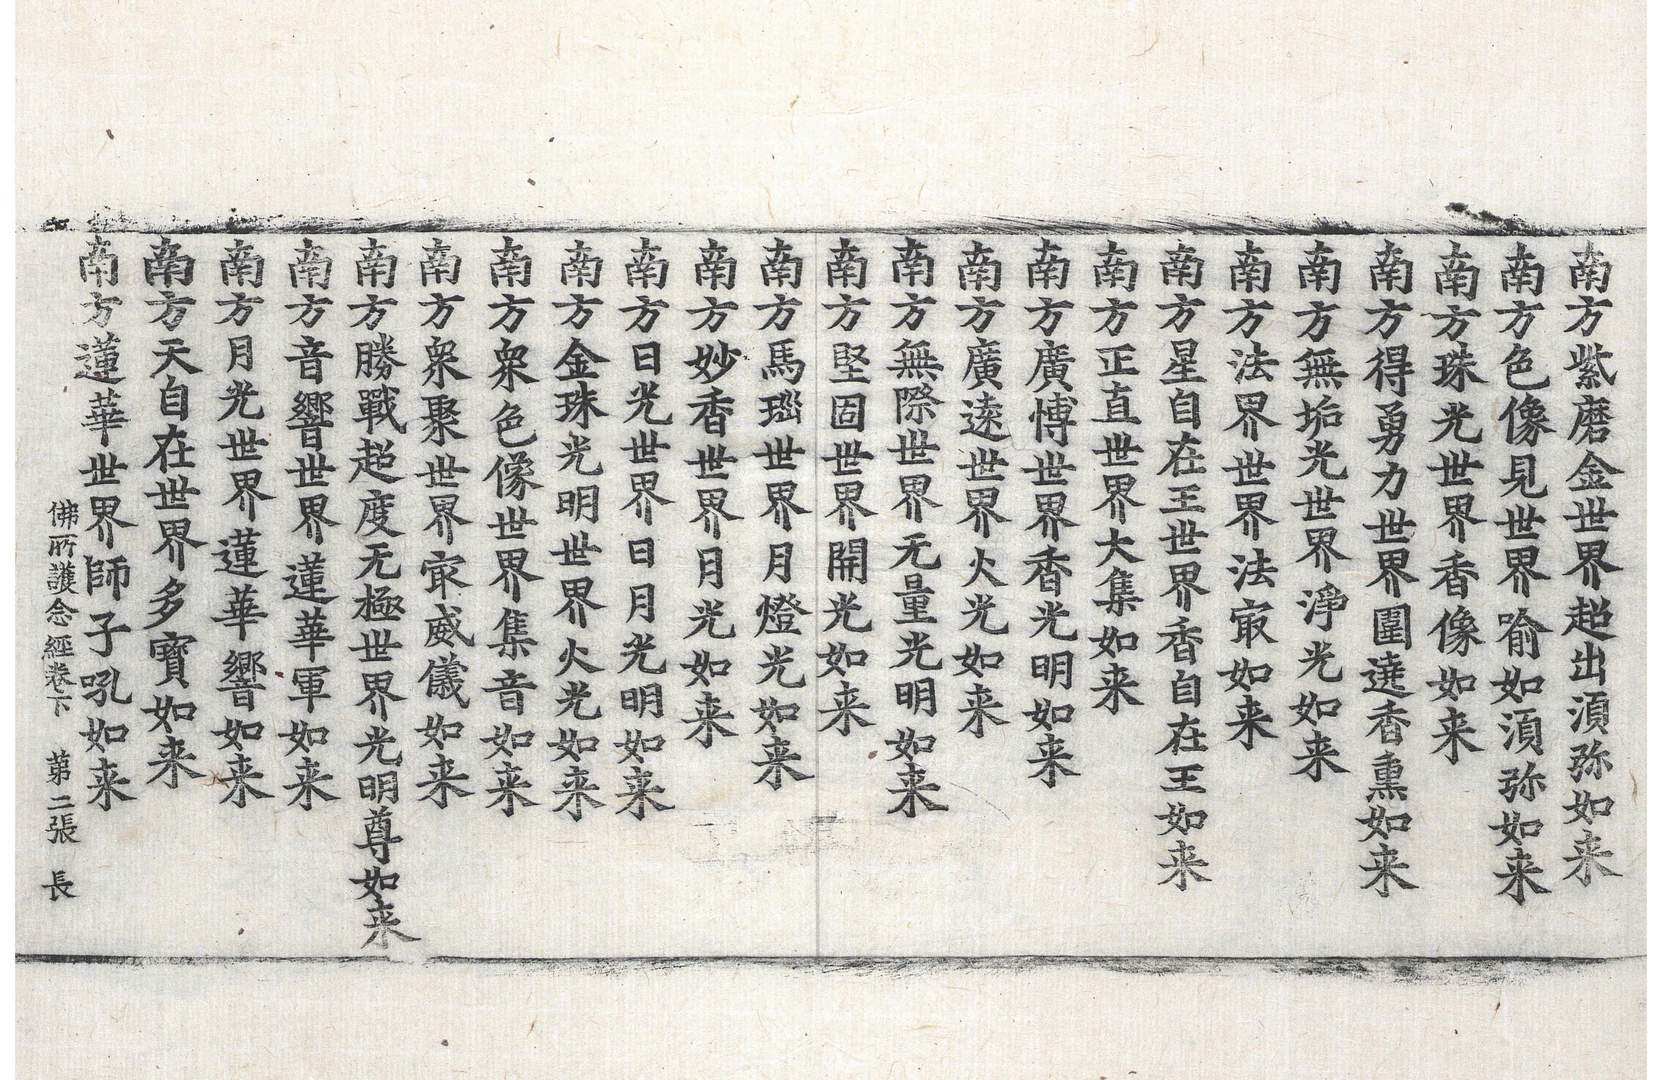 南方紫磨金世界超出湏弥如来
南方色像見世界喻如湏弥如来
南方珠光世界香像如来
南方得勇力世界圍遶香熏如来
南方無垢光世界淨光如来
南方法界世界法冣如来
南方星自在王世界香自在王如来
南方正直世界大集如来
南方廣愽世界香光明如来
南方廣遠世界火光如来
南方無際世界无量光明如来
南方堅固世界開光如来
南方馬瑙世界月燈光如来
南方妙香世界月光如来
南方日光世界日月光明如来
南方金珠光明世界火光如来
南方衆色像世界集音如来
南方衆聚世界冣威儀如来
南方勝戰超度无極世界光明尊如来
南方音響世界蓮華軍如来
南方月光世界蓮華響如来
南方天自在世界多寳如来
南方蓮華世界師子吼如来
佛所護念經卷下 第二張 長